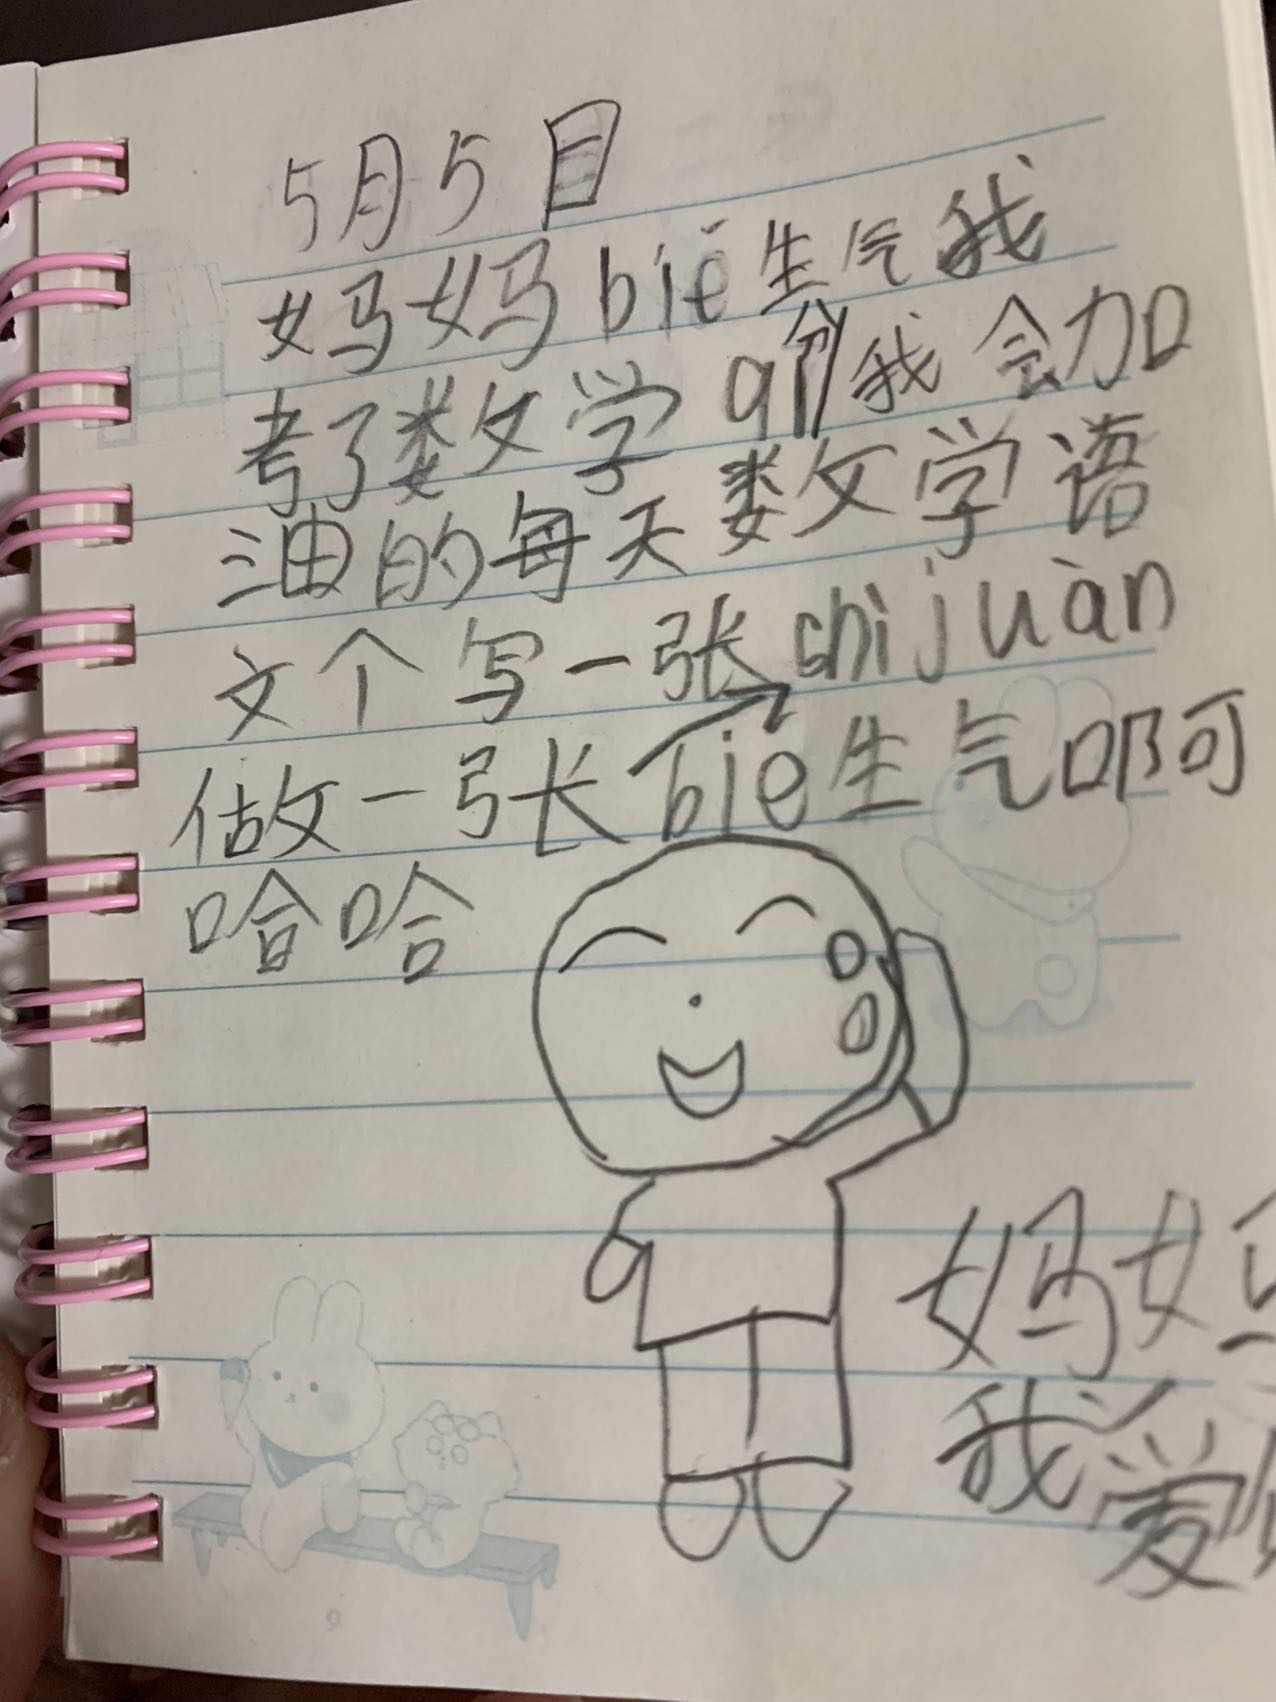 5月5日
妈妈bié生气我
考了数学91分我会加
油的每天数学语
文个写一张shìjuàn
做一张bié生气啊
哈哈
妈妈
我爱